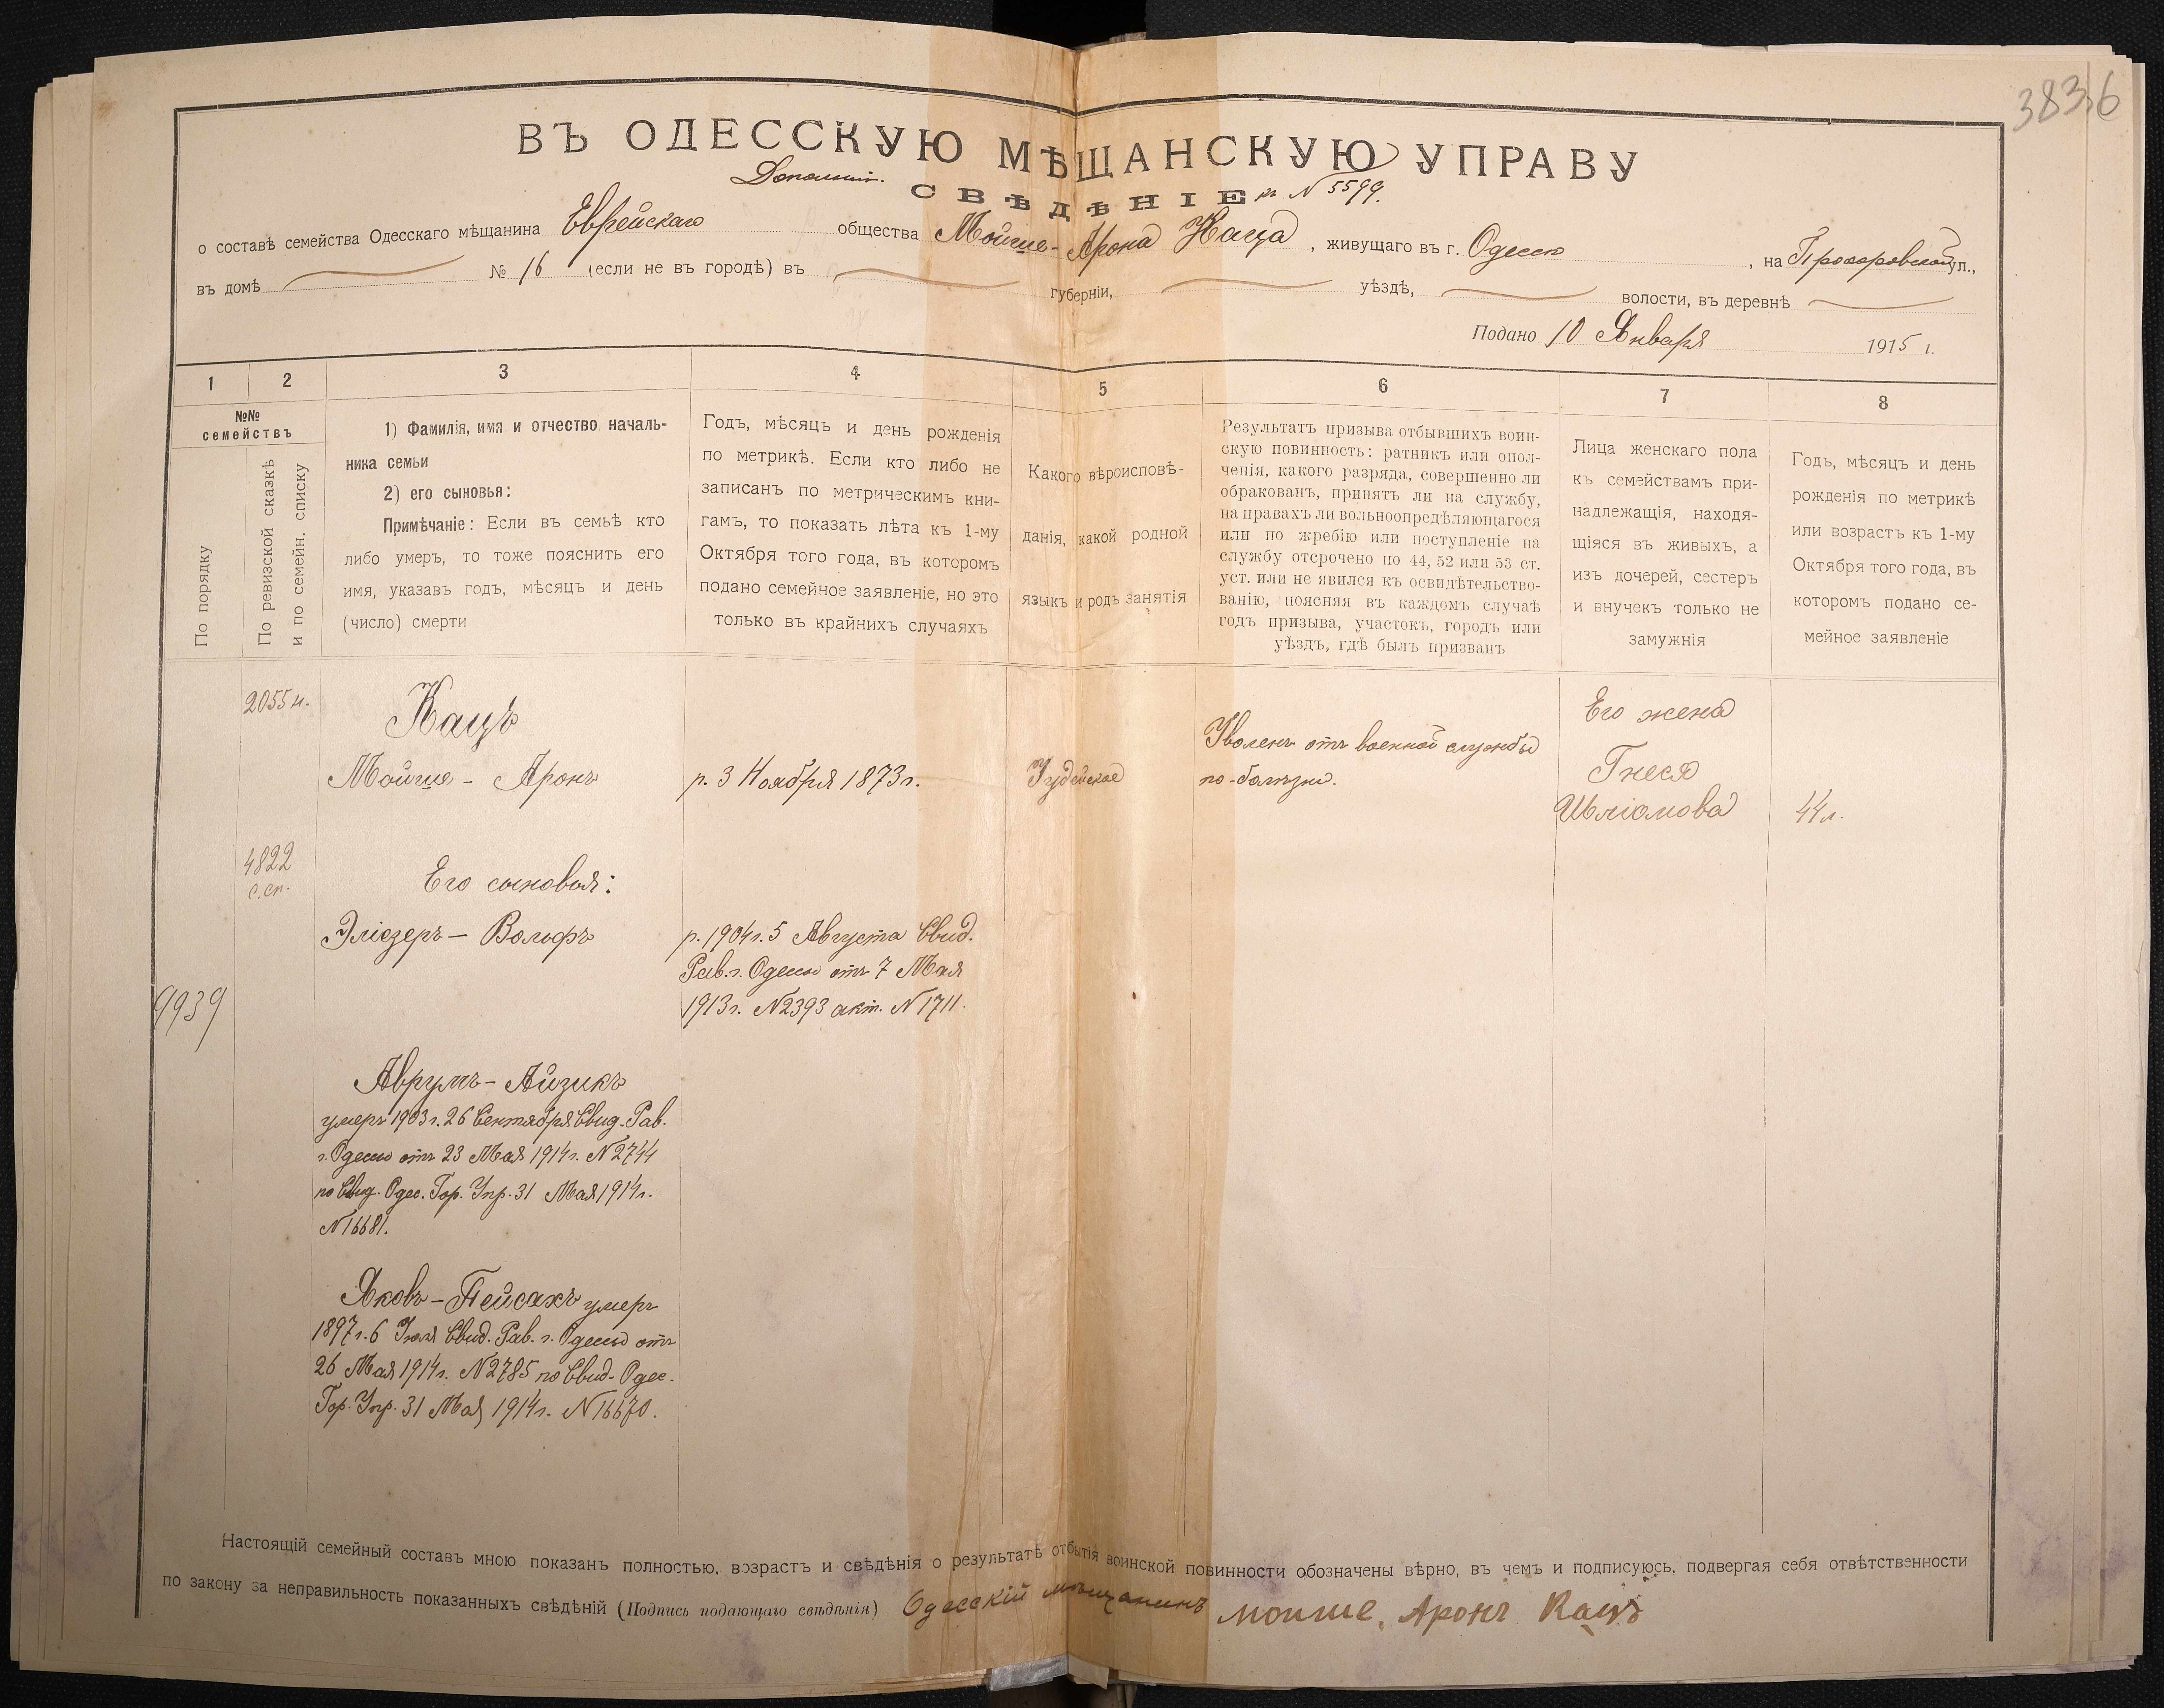 3836
ВЪ ОДЕССКУЮ МѢЩАНСКУЮ УПРАВУ
СВѢДѢНІЕ къ N 5599.
о составѣ семейства Одесскаго мѣщанина Еврейскаго общества Мойше-Арона Каца, живущаго въ г. Одессѣ, на Прохоровской ул.,
въ домѣ № 16 (если не въ городѣ) въ губерніи, уѣздѣ, волости, въ деревнѣ
Подано 10 Января 1915 г.
1 2 3 4 5 6 7 8
№№
семействъ
По порядку
По ревизской сказкѣ
и по семейн. списку
1) Фамилія, имя и отчество началь-
ника семьи
2) его сыновья:
Примѣчаніе: Если въ семьѣ кто
либо умеръ, то тоже пояснить его
имя, указавъ годъ, мѣсяцъ и день
(число) смерти
Годъ, мѣсяцъ и день рожденія
по метрикѣ. Если кто либо не
записанъ по метрическимъ кни-
гамъ, то показать лѣта къ 1-му
Октября того года, въ которомъ
подано семейное заявленіе, но это
только въ крайнихъ случаяхъ
Какого вѣроисповѣ-
данія, какой родной
языкъ и родъ занятія
Результатъ призыва отбывшихъ воин-
скую повинность: ратникъ или опол-
ченія, какого разряда, совершенно ли
обракованъ, принятъ ли на службу,
на правахъ ли вольноопредѣляющагося
или по жребію или поступленіе на
службу отсрочено по 44, 52 или 53 ст.
уст. или не явился къ освидѣтельство-
ванію, поясняя въ каждомъ случаѣ
годъ призыва, участокъ, городъ или
уѣздъ, гдѣ былъ призванъ
Лица женскаго пола
къ семействамъ при-
надлежащія, находя-
щіяся въ живыхъ, а
изъ дочерей, сестеръ
и внучекъ только не
замужнія
Годъ, мѣсяцъ и день
рожденія по метрикѣ
или возрастъ къ 1-му
Октября того года, въ
которомъ подано се-
мейное заявленіе
2055 н.
Кацъ
Мойше - Аронъ
р. 3 Ноября 1873 г.
Іудейское
Уволенъ отъ военной службы
по-болѣзни.
Его жена
Гнеся
Шліомова
44 л.
4822
с.сп.
Его сыновья:
Эліезеръ - Вольфъ
р. 1904 г. 5 Августа Свид.
Рав. г. Одессы отъ 7 Мая
1913 г. N 2393 акт. N 1711.
9939
Аврумъ - Айзикъ
умеръ 1903 г. 26 Сентября Свид. Рав.
г. Одессы отъ 23 Мая 1914 г. N 2744
по Свид. Одес. Гор. Упр. 31 Мая 1914 г.
N 16681.
Яковъ - Пейсахъ умеръ
1897 г. 6 Свид. Рав. г. Одессы отъ
26 Мая 1914 г. N 2785 по Свид. Одес.
Гор. Упр. 31 Мая 1914 г. N 16670.
Настоящій семейный составъ мною показанъ полностью, возрастъ и свѣдѣнія о результатѣ отбытія воинской повинности обозначены вѣрно, въ чемъ и подписуюсь, подвергая себя отвѣтственности
по закону за неправильность показанныхъ свѣдѣній (Подпись подающаго свѣдѣнія) Одесскій мѣщанинъ Мойше. Аронъ Кацъ